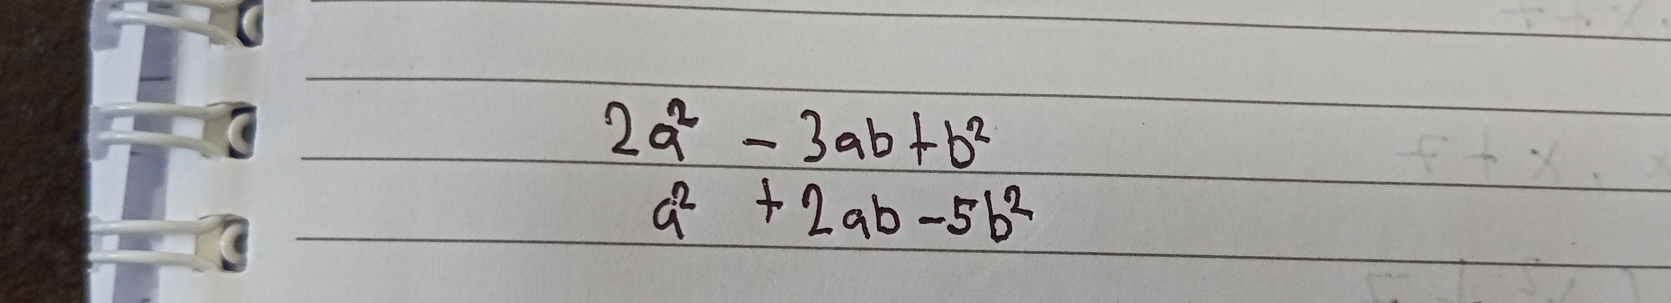 2a² - 3ab + b²
a² + 2ab - 5b²